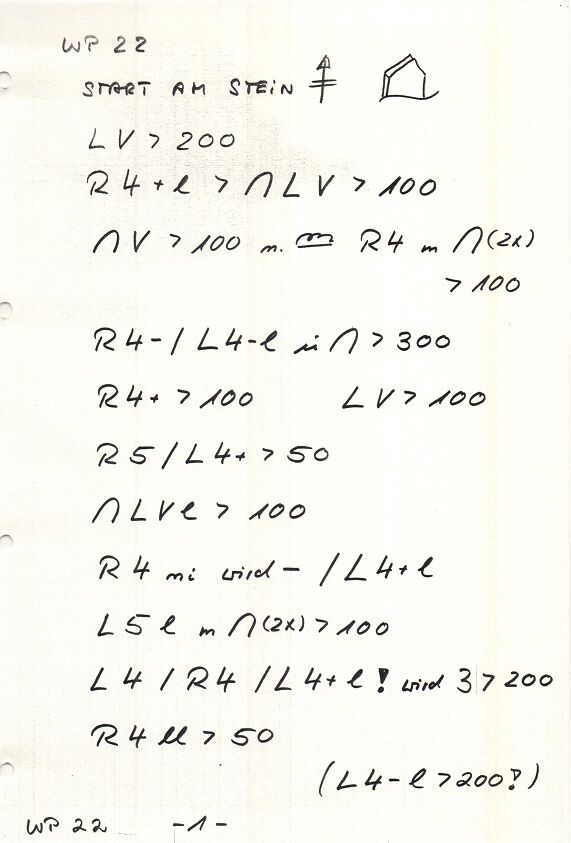 WP 22
START AM STEIN
LV > 200
R4+l > ∩LV > 100
∩V > 100 m. R4 m ∩(2x)
> 100
R4-/L4-l in ∩ > 300
R4+ > 100 LV > 100
R5/L4+ > 50
∩LVl > 100
R4 mi wird - /L4+l
L5l m ∩(2x) > 100
L4/R4/L4+l! wird 3 > 200
R4ll > 50
(L4-l > 200!)
WP 22 -1-